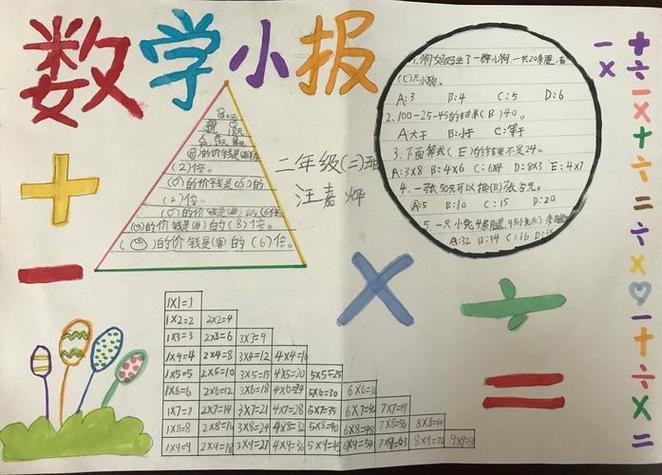 数学小报
1.狗妈妈生了一群小狗,一共20条腿,有
(C)只小狗。
A:3 B:4 C:5 D:6
2.100-25-45的结果(B)40。
A:大于 B:小于 C:等于
3.下面算式(E)的结果不是24。
A:3×8 B:4×6 C:6×4 D:8×3 E:4×7
4.一张50元可以换(B)张5元。
A:5 B:10 C:15 D:20
A:32 B:34 C:36
的价钱是
(2)倍。
的价钱是 的
(2)倍。
的价钱是
的价钱是 的(8)倍。
的价钱是 的(6)倍。
二年级(三)班
汪嘉烨
+
-
×
÷
=
1×1=1
1×2=2 2×2=4
1×3=3 2×3=6 3×3=9
1×4=4 2×4=8 3×4=12 4×4=16
1×5=5 2×5=10 3×5=15 4×5=20 5×5=25
1×6=6 2×6=12 3×6=18 4×6=24 5×6=30
1×7=7 2×7=14 3×7=21 4×7=28 5×7=35 6×7=42 7×7=49
1×8=8 2×8=16 3×8=24 4×8=32 5×8=40 6×8=48 7×8=56 8×8=64
1×9=9 2×9=18 3×9=27 4×9=36 5×9=45 6×9=54 7×9=63 8×9=72